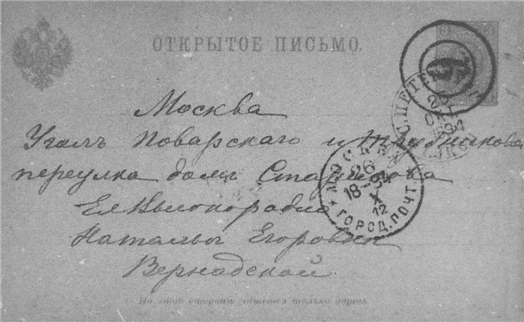 ОТКРЫТОЕ ПИСЬМО.
С.ПЕТЕР
Москва
Уголъ Поварскаго и
переулка домъ
Ея Высокородію
Натальѣ Егоровнѣ
Вернадской
МОСКВА
26
X
12
ГОРОД. ПОЧТ.
На этой сторонѣ пишется только адресъ.